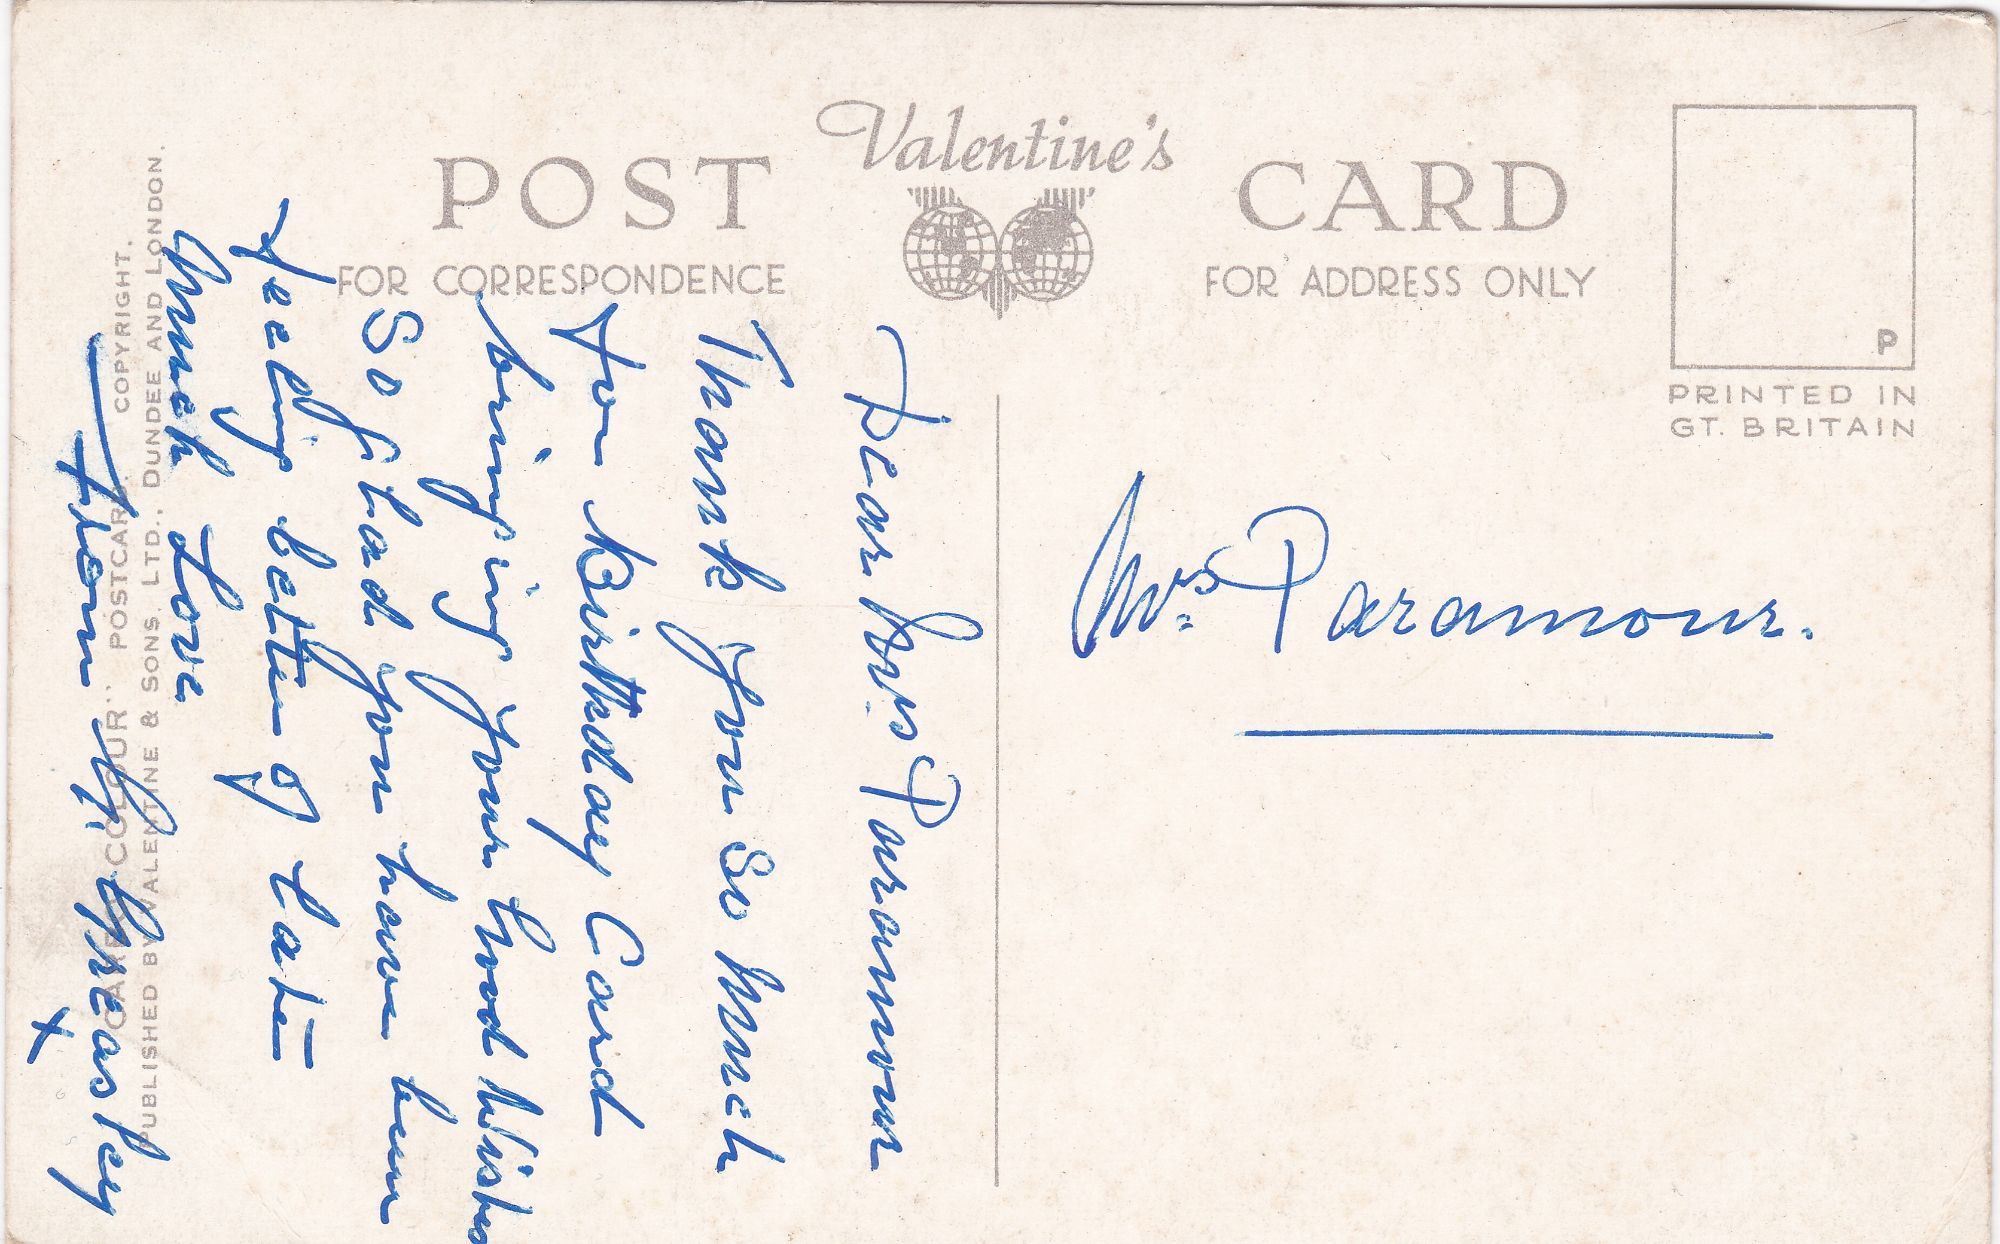 Valentine's
POST CARD
FOR CORRESPONDENCE
FOR ADDRESS ONLY
P
PRINTED IN
GT. BRITAIN
Dear Mrs Paramour
Thank you so much
for Birthday Card
bringing your good wishes
So glad you have been
feeling better of late
Much Love
from M.
x
Mrs. Paramour.
COLOUR" POSTCARD. COPYRIGHT.
PUBLISHED BY VALENTINE & SONS, LTD., DUNDEE AND LONDON.